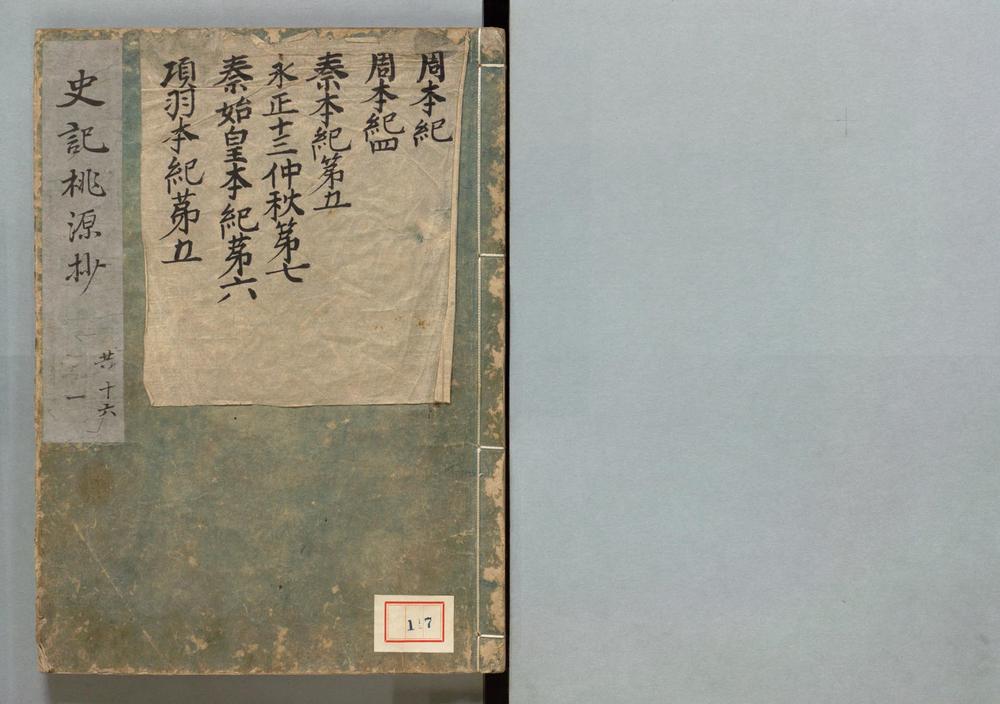 周本紀
周本紀四
秦本紀第五
永正十三仲秋第七
秦始皇本紀第六
項羽本紀第五
史記桃源抄
共十六
一
1 7